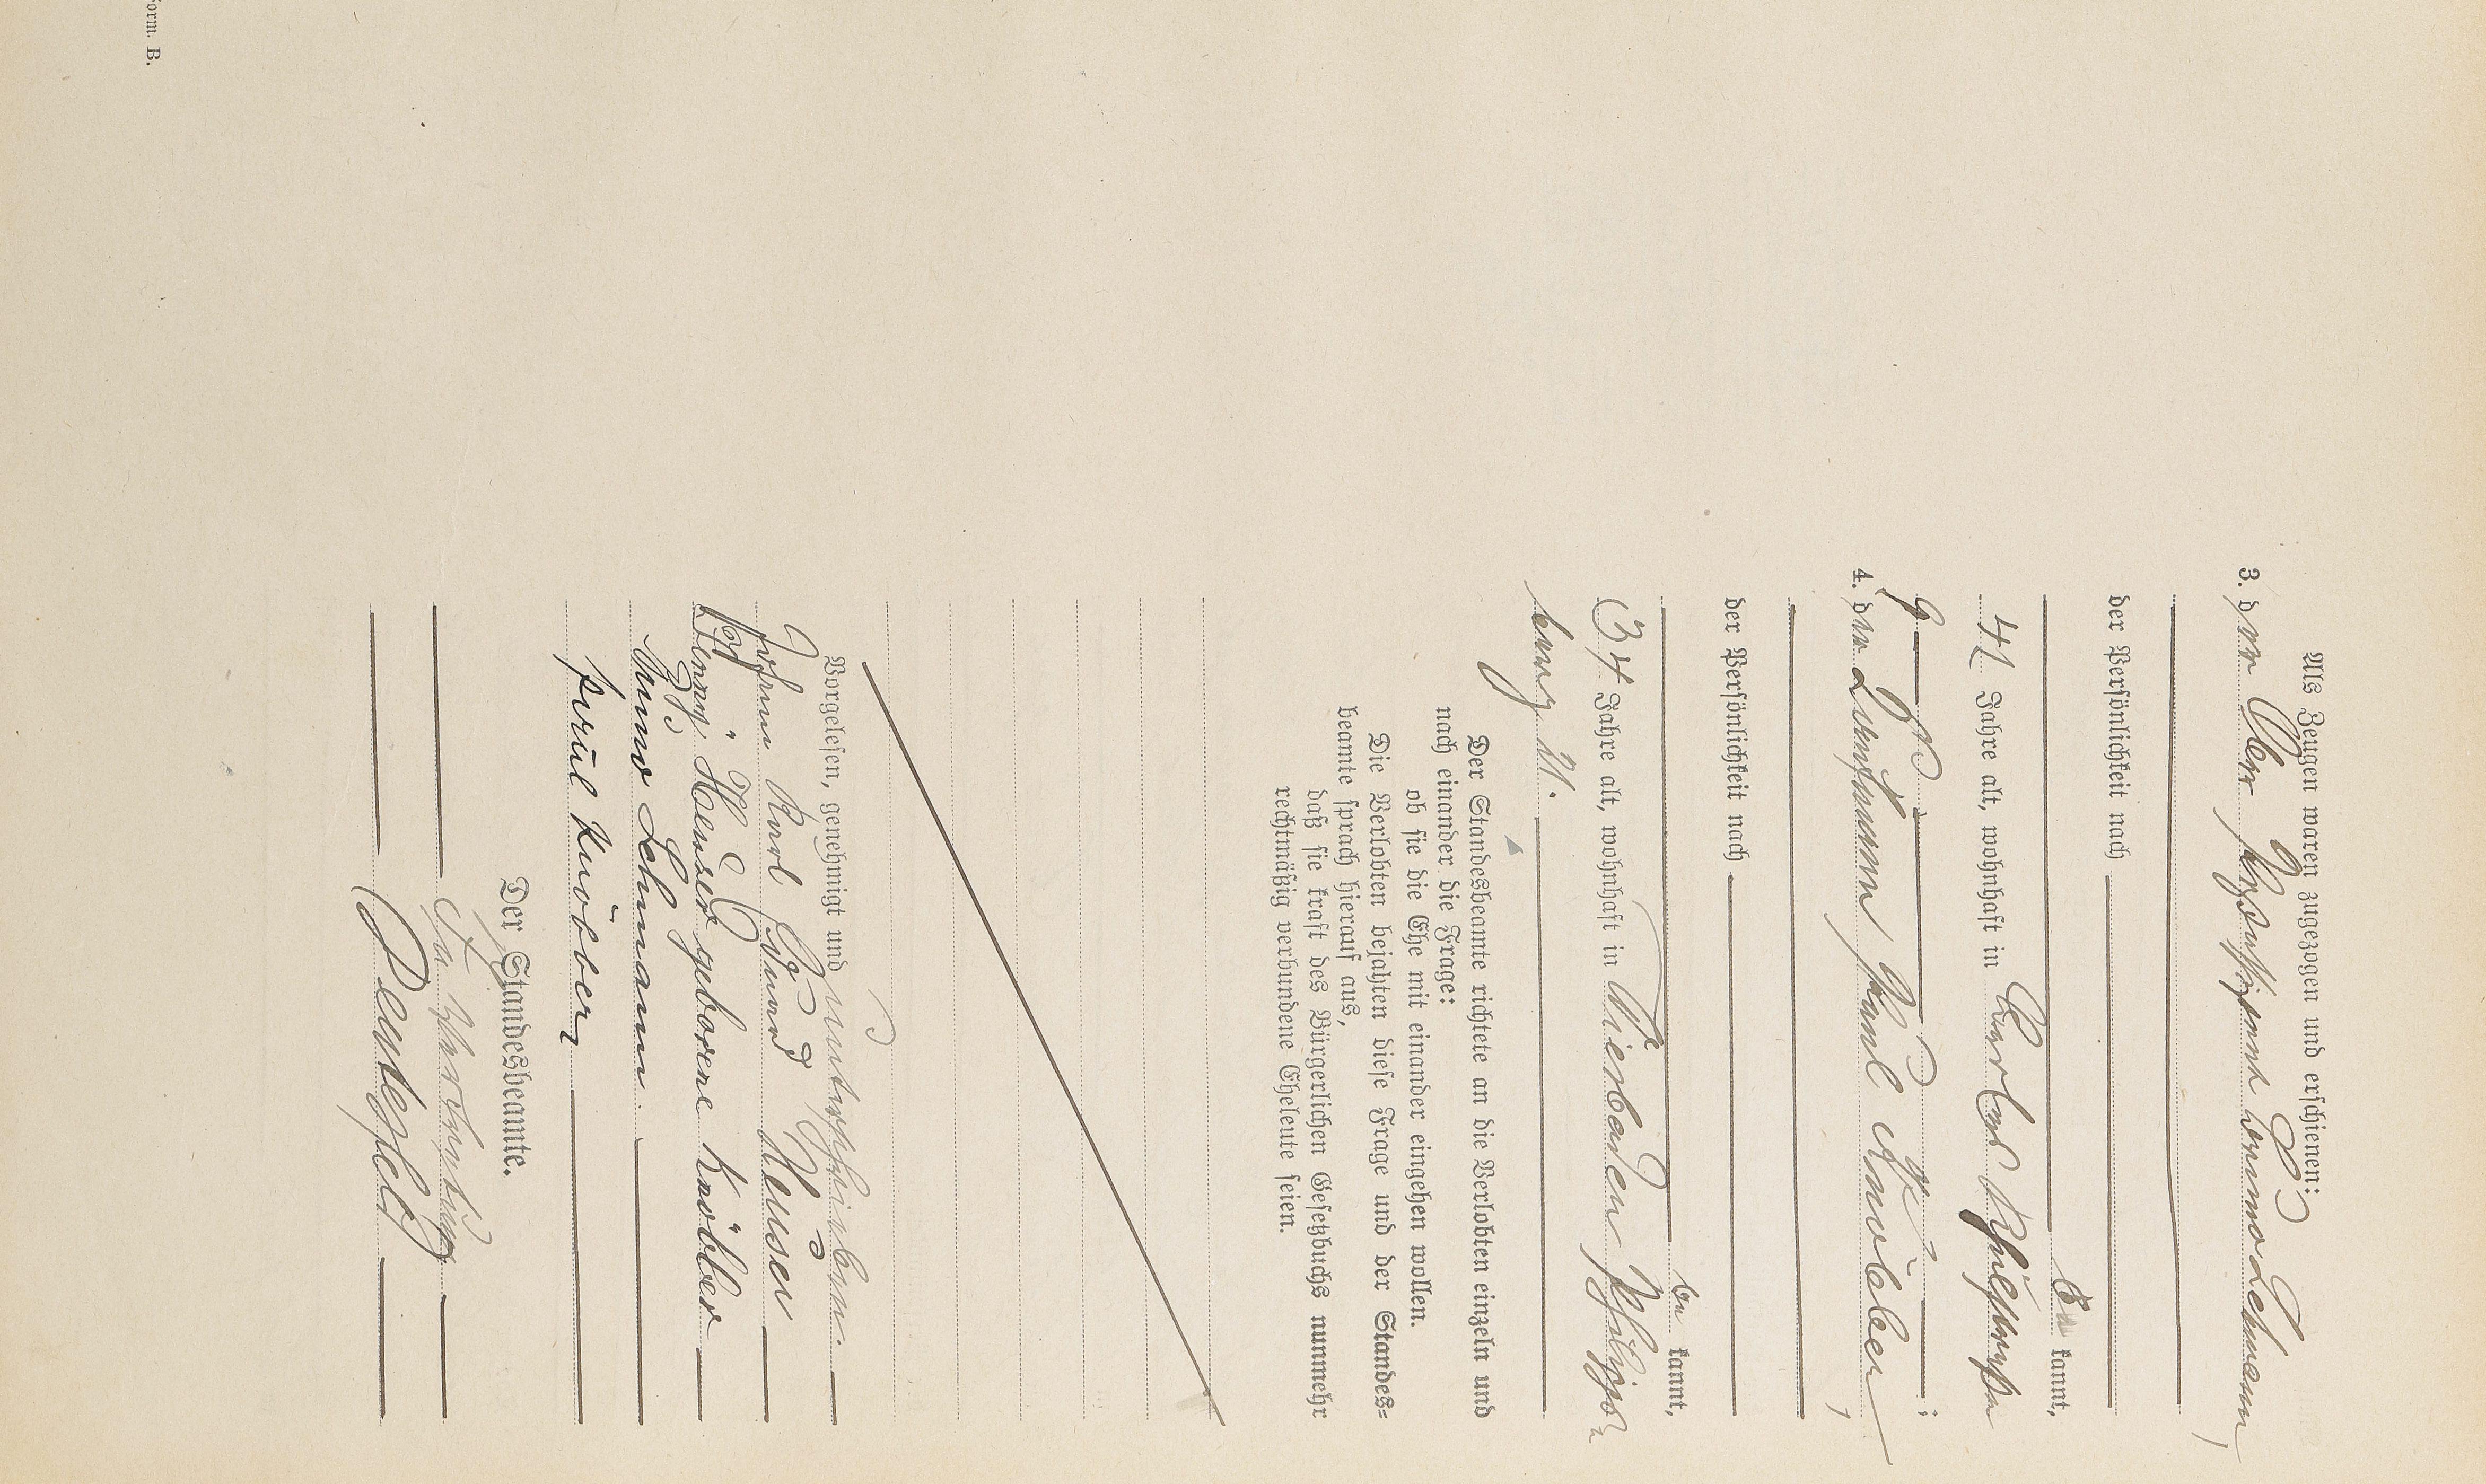 Als Zeugen waren zugezogen und erschienen:
3. der Ober Lehrmann,
der Persönlichkeit nach
be kannt,
41 Jahre alt, wohnhaft in
9;
4. der Kaufmann Paul Knöbber,
der Persönlichkeit nach
be kannt,
34 Jahre alt, wohnhaft in Wiesbaden, Philipps-
berg 21.
Der Standesbeamte richtete an die Verlobten einzeln und
nach einander die Frage:
ob sie die Ehe mit einander eingehen wollen.
Die Verlobten bejahten diese Frage und der Standes-
beamte sprach hierauf aus,
daß sie kraft des Bürgerlichen Gesetzbuchs nunmehr
rechtmäßig verbundene Eheleute seien.
Vorgelesen, genehmigt und unterschrieben.
Karl Heuser
Henny Heuser geborene Knöbber
Lehmann
Paul Knöbber
Der Standesbeamte.
In Vertretung
Form. B.